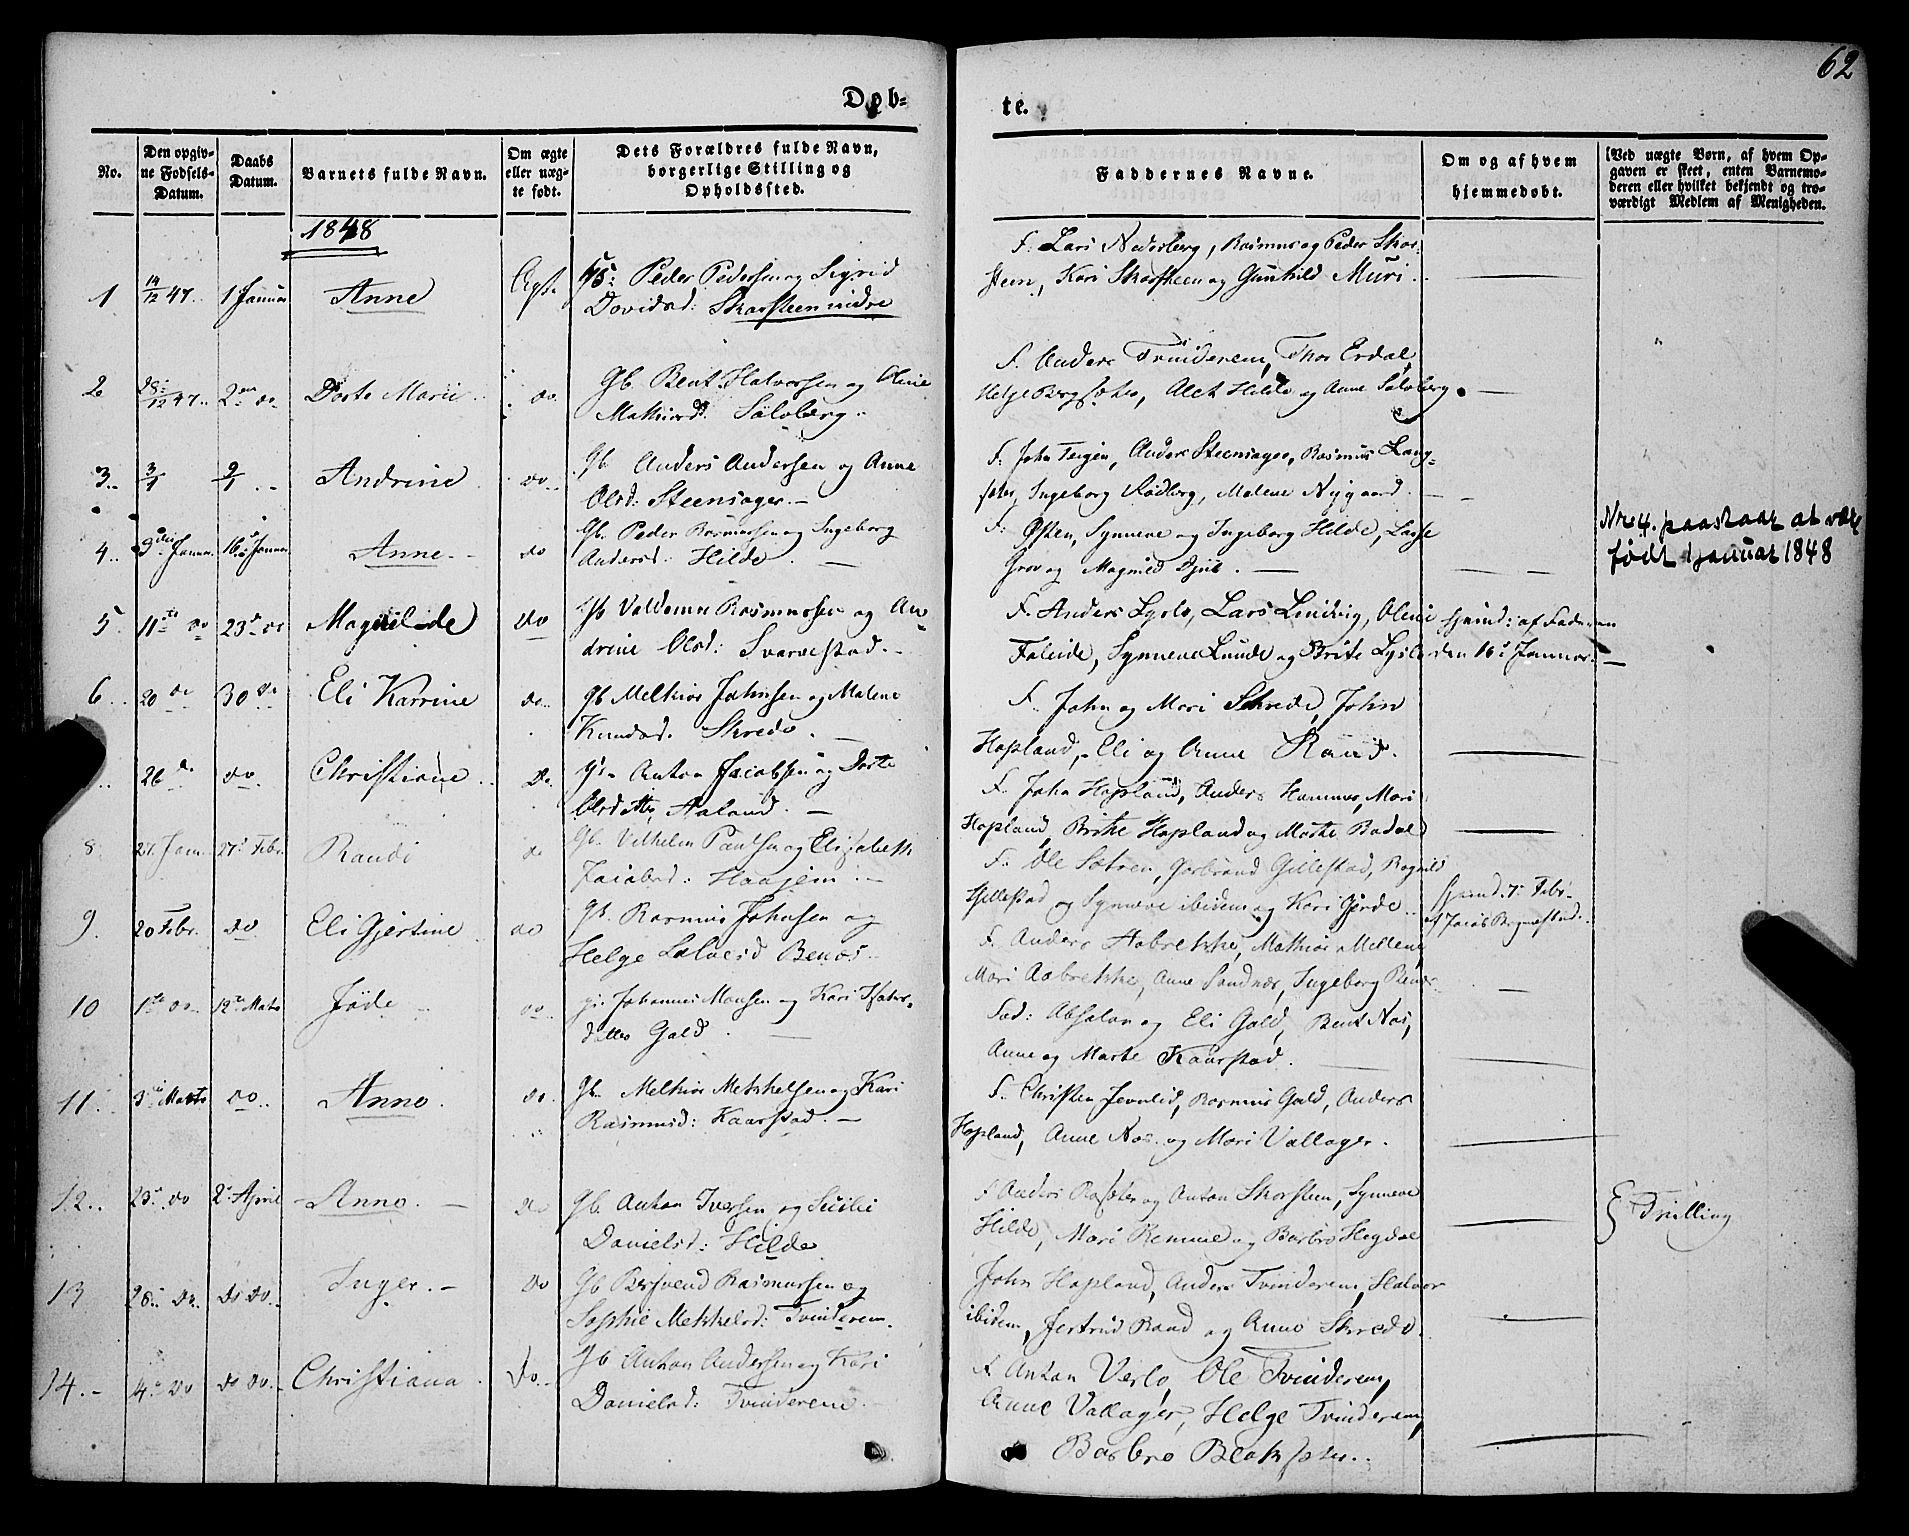 62
Døb-
te.
No.
Den opgiv-
ne Fødsels-
Datum.
Daabs
Datum.
Barnets fulde Navn.
Om ægte
eller uæg-
te født.
Dets Forældres fulde Navn,
borgerlige Stilling og
Opholdssted.
Faddernes Navne.
Om og af hvem
hjemmedøbt.
(Ved uægte Børn, af hvem Op-
gaven er skeet, enten Barnemo-
deren eller hvilket bekjendt og tro-
værdigt Medlem af Menigheden.
1848
1 14/12 47. 1 Januar Anne Ægt. Peder Pedersen og Sigrid
Davidsd: Skarsteen nidre
F. Lars Nedreberg, Rasmus og Peder Skar-
steen, Kari Skarsteen og Gunhild Muri.
2 28/12 47. 2 do Dorte Marie do Gb. Bent Halvorsen og Oline
Mathiasd: Solvberg.
F. Anders Tvinderem, Thor Erdal,
Helge Bergsæter, Alet Hilde og Anne Solvberg.
3. 3/1 9/1 Andrine do Gb. Anders Andersen og Anne
Olsd: Steensager.
F. John Teigen, Anders Steensager, Rasmus Lang-
sæter, Ingeborg Rødberg, Malene Nygaard.
4. 9de Januar 16. Januar Anne do Gb. Peder Rasmussen og Ingeborg
Andersd: Hilde.
F. Østen, Synneve og Ingeborg Hilde, Lasse
Grov og Magnild
Nr. 4. paastaar at være
født 1 januar 1848
5. 11te do 23de do Magnilde do Gb. Valdemar Rasmussen og An-
drine Olsd: Svarvestad.
F. Anders Lyslo, Lars Lindvig, Oline
Faleide, Synneve Lunde og Brite Lyslo
Hjemd: af Faderen
den 16de Januar.
6. 20 do 30 do Eli Karrine do Gb Melkior Johnsen og Malene
Knudsd. Skrede.
F. John og Mari Skrede, John
Hopland, Eli og Anne Rand.
26 do do Christiane do Gb. Anton Jacobsen og Dorte
Olsdatter, Aaland.
F. John Hopland, Anders Hammer, Mari
Hopland, Brithe Hopland og Marthe Rødal
8 27. Jan. 27. Febr. Randi do Gb. Vilhelm Paulsen og Elizabeth
Jacobsd: Haajem.
F. Ole Sætren, Gerbrand Gillestad, Ragnild
Gjillestad og Synneve ibidem og Kari Gjerde.
Hjemd. 7. Febr.
af Jacob
9. 20 Febr. do Eli Gjertine do Gb. Rasmus Johnsen og
Helge Salvesd Benæs.
F. Anders Aabrekke, Mathias Mellem,
Mari Aabrekke, Anne Sandnæs, Ingeborg
10 1te do 19de Marts Jøde do Gb. Johannes Monsen og Kari
datter Gald.
Fad: Absalon og Eli Gald, Bent Nos,
Anne og Marte Kaarstad.
11. 3die Marts do Anne. do Gb. Melkior Mekkelsen og Kari
Rasmusd: Kaarstad.
F. Christen Jevnlid, Rasmus Gald, Anders
Hopland, Anne Nos. og Mari Vallager.
12. 23. do 2. April Anne. do Gb. Anton Iversen og Sicilie
Danielsd: Hilde.
F. Anders Raksæter og Anton Skarsteen, Synneve
Hilde, Mari Remme og Barbro Hegdal
Tvilling
13 28. do. do do. Inger. do Gb Bersvend Rasmussen og
Sophie Mekkelsd: Tvinderem.
John Hopland, Anders Tvinderem, Halvor
ibidem, Jertrud Rand og Anne Skrede.
14. 4. do do do. Christiana do. Gb Anton Andersen og Kari
Danielsd: Tvinderem.
F. Anton Verlo, Ole Tvinderem,
Anne Vallager, Helge Tvinderem,
Barbro Blaksæter.